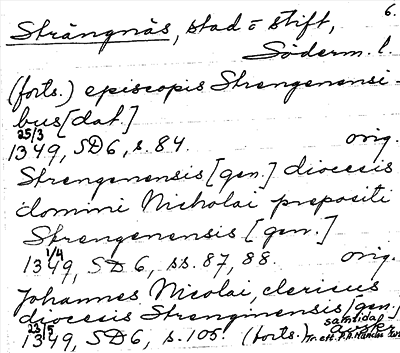 6.
Strängnäs, stad o stift,
Söderm. l.
(forts.) episcopis Strengenensi-
bus [dat.]
25/3
1349, SD 6, s. 84. orig.
Strengenensis [gen.] diocesis
domini Nicholai prepositi
Strengenensis [gen.]
1/4
1349, SD 6, ss. 87, 88. orig.
Johannes Nicolai, clericus
diocesis Strenginensis [gen.]
23/5 samtida
1349, SD 6, s. 105. (forts.) Tr. eft.